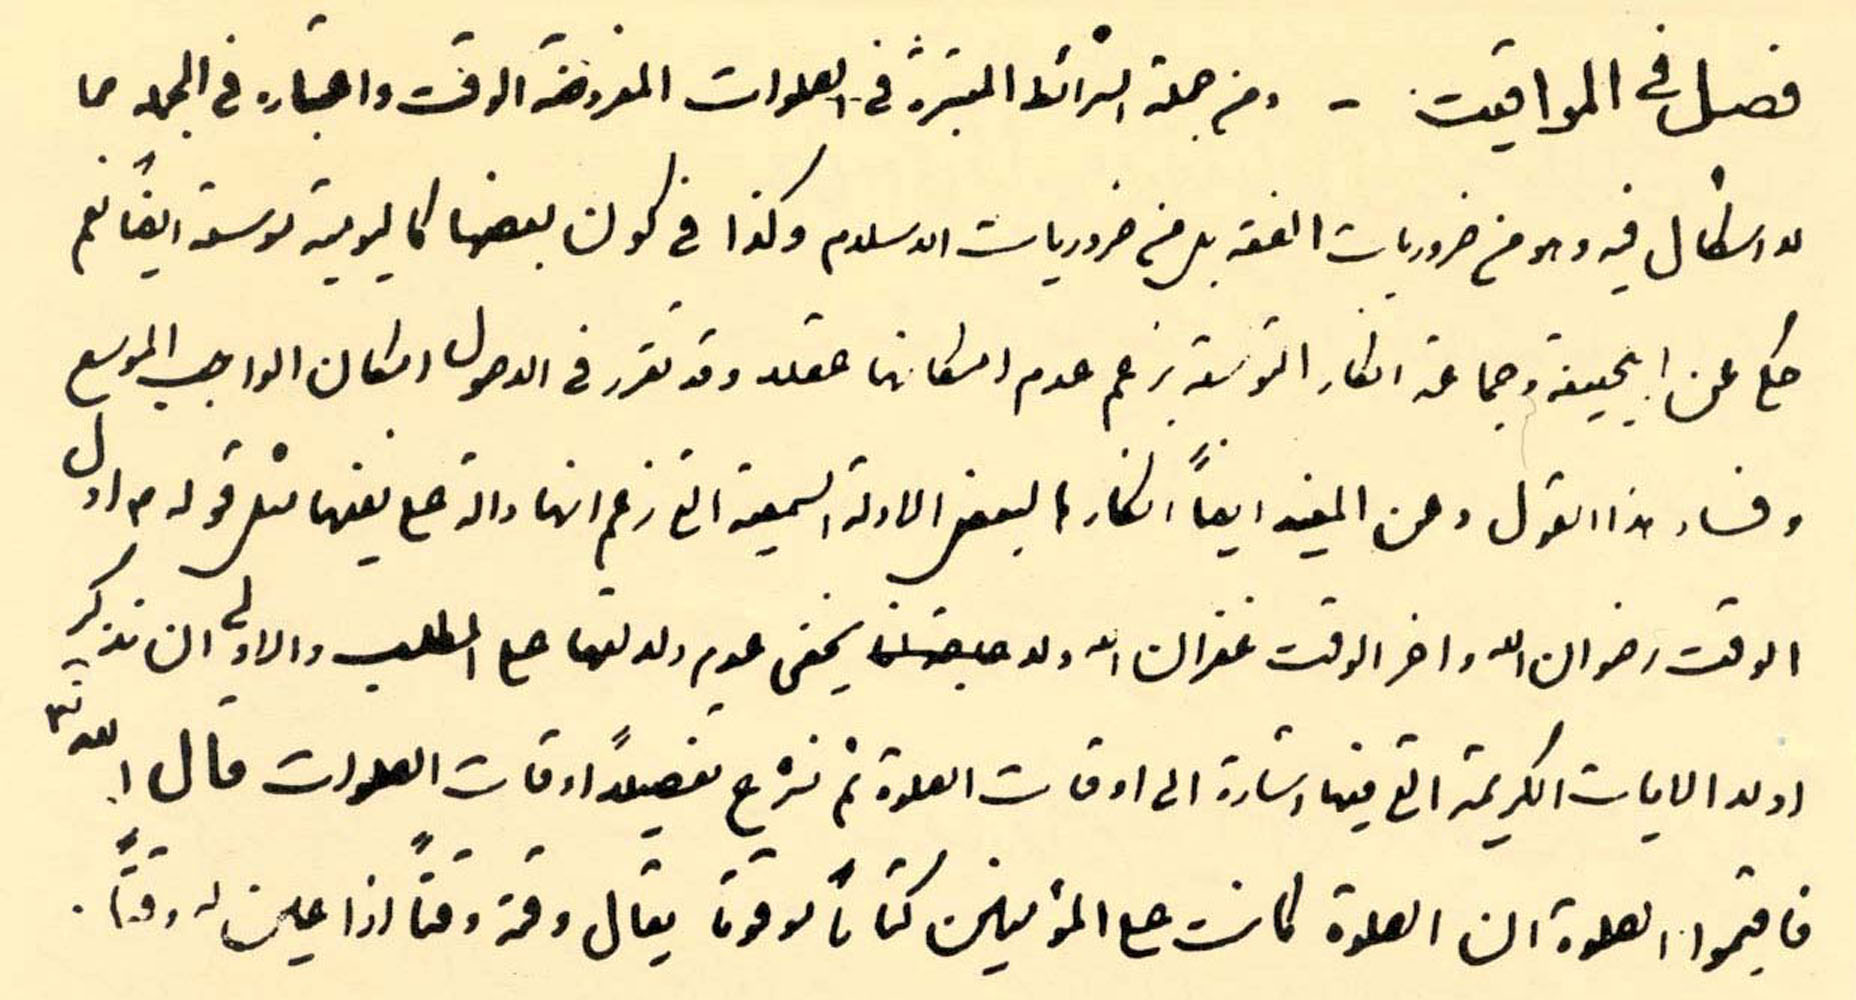 فصل في المواقيت - ومن جملة الشرائط المعتبرة في الصلوات المفروضة الوقت واعتباره في الجملة مما
لا اشكال فيه وهو من ضروريات الفقه بل من ضروريات الاسلام وكذا في كون بعضها كاليومية موسعة ايضاً نعم
حكي عن ابيحنيفة وجماعة انكار التوسعة بزعم عدم امكانها عقلا وقد تقرر في الاصول امكان الواجب الموسع
وفساد هذا القول وعن المفيد ايضاً انكارها لبعض الادلة السمعية التي زعم انها دالة على نفيها مثل قوله ع اول
الوقت رضوان الله واخر الوقت غفران الله ولا يخفى عدم دلالتها على المطلب والاولى ان نذكر
اولا الايات الكريمة التي فيها اشارة الى اوقات الصلوة ثم نشرح تفصيلاً اوقات الصلوات قال الله تعالى
فاقيموا الصلوة ان الصلوة كانت على المؤمنين كتاباً موقوتا يقال وقته وقتاً اذا عين له وقتاً .